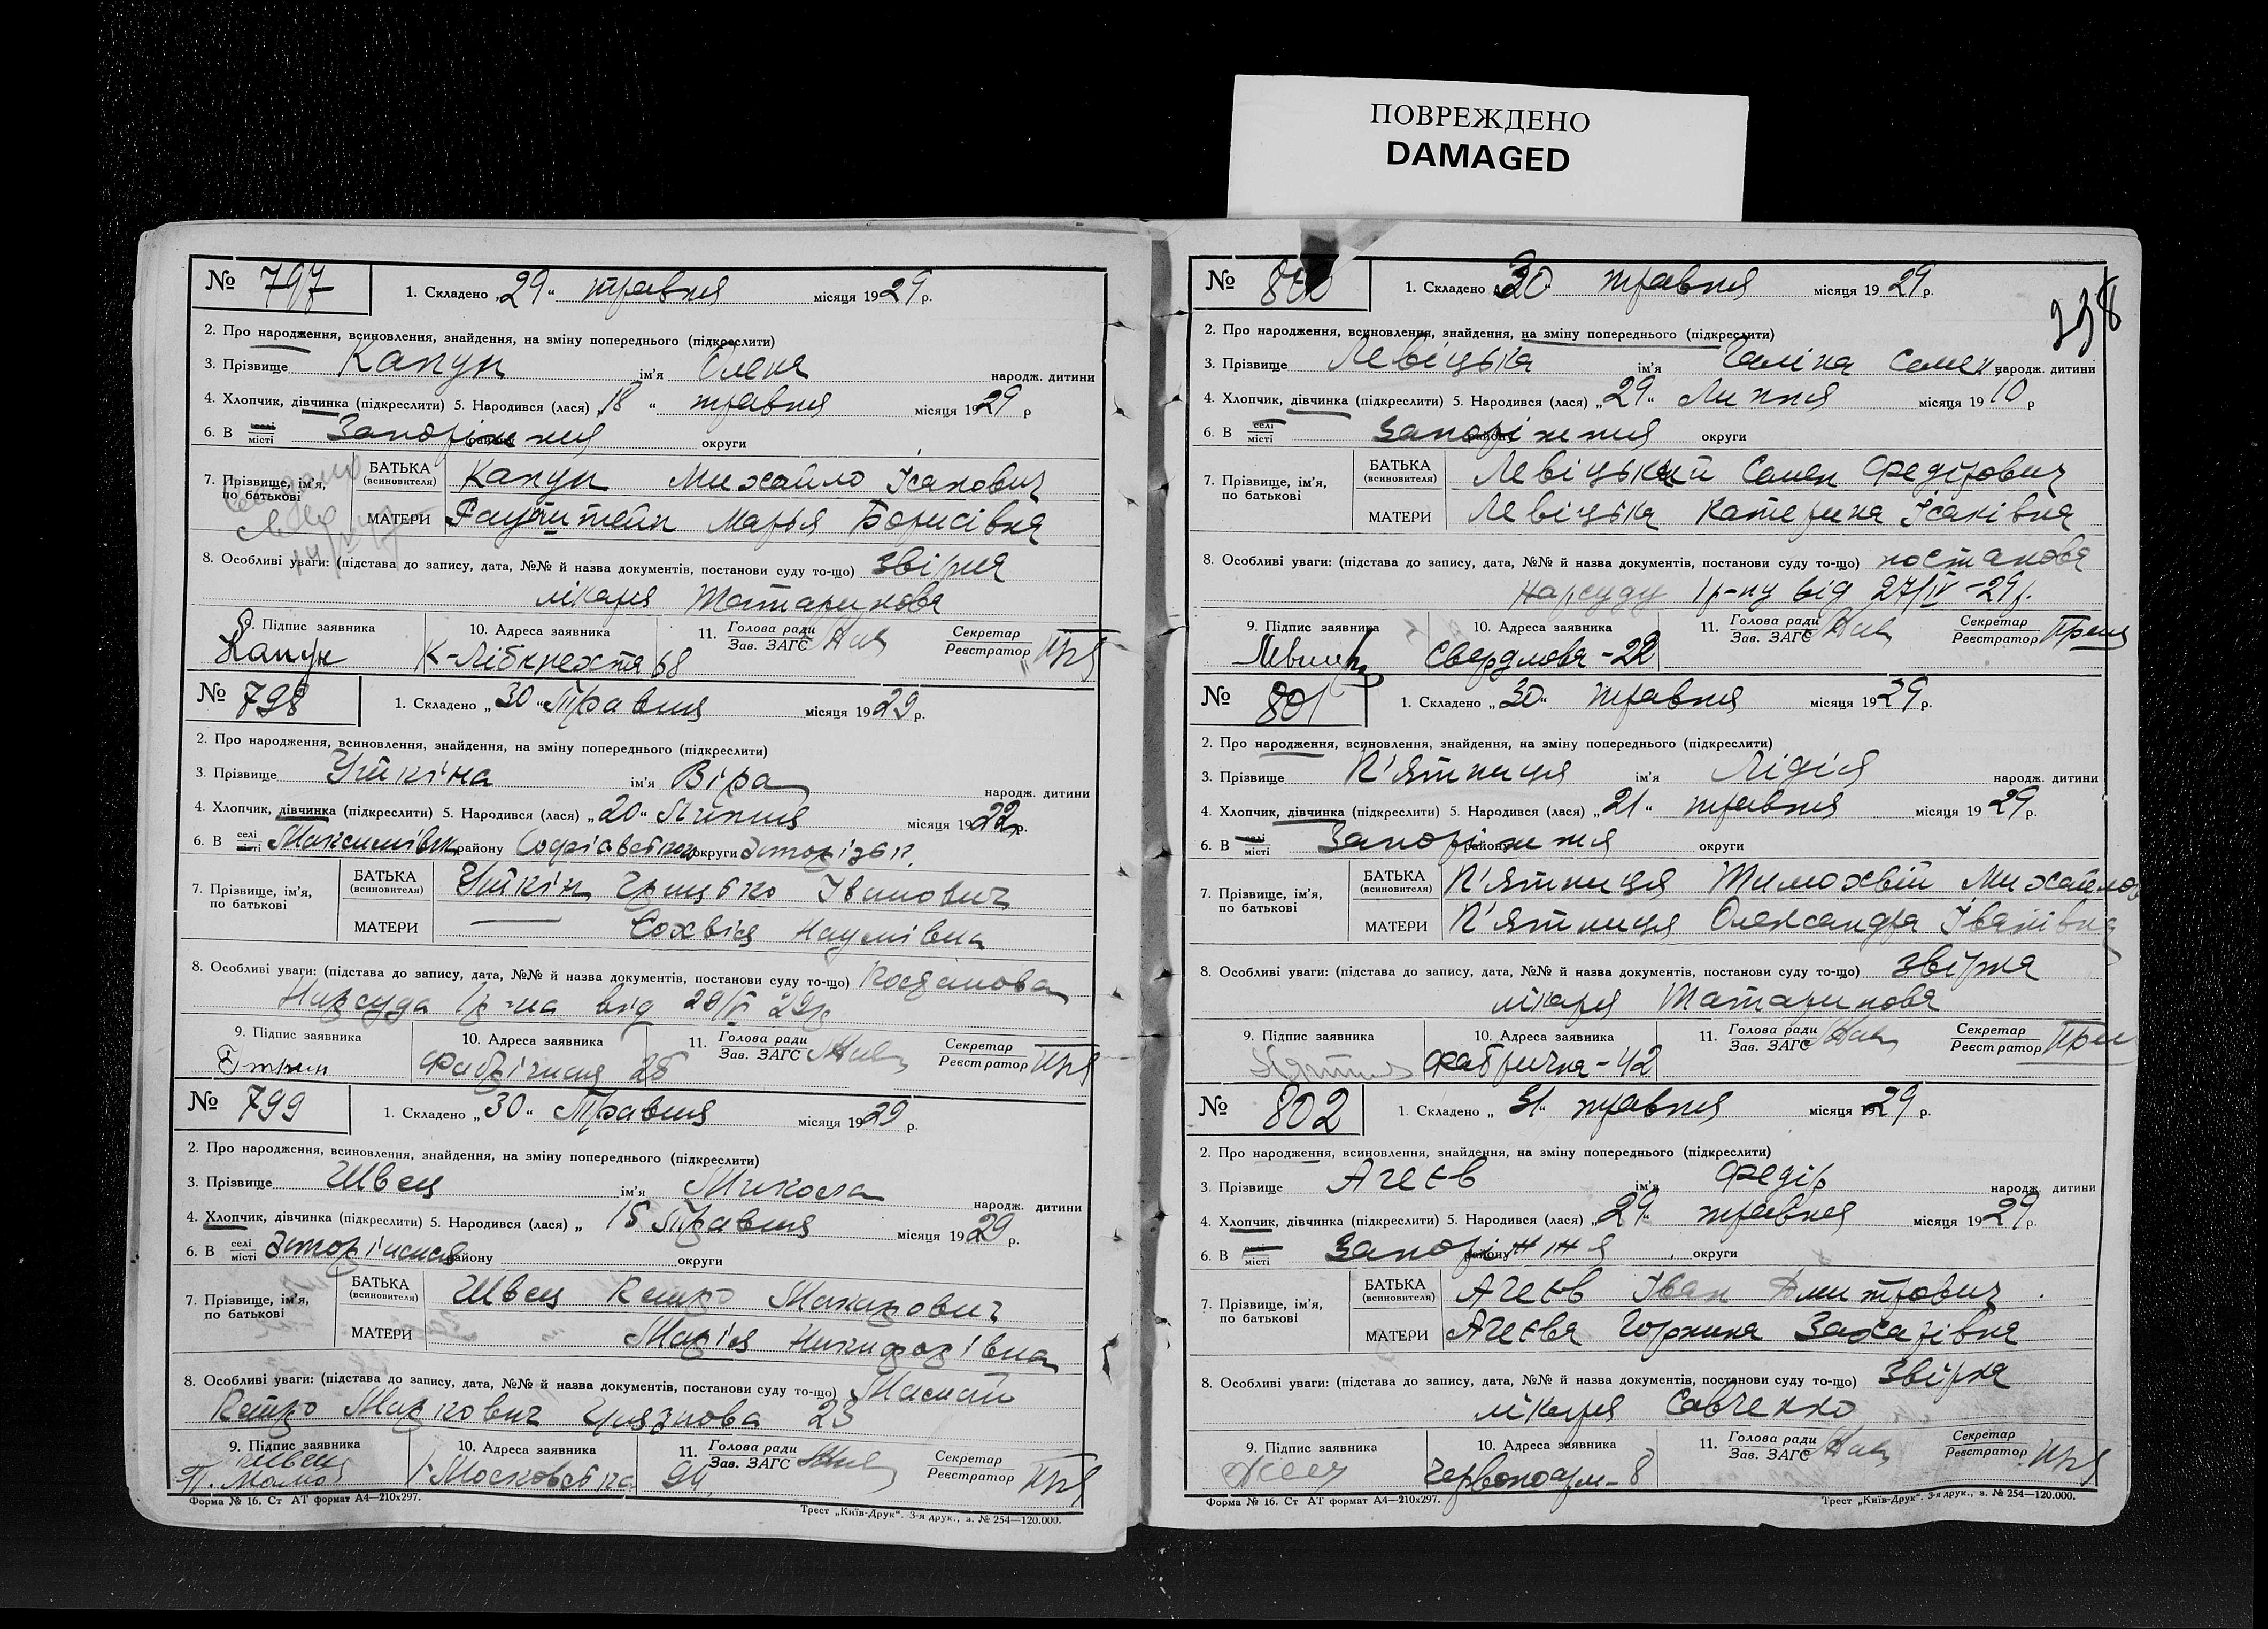 ПОВРЕЖДЕНО
DAMAGED
№ 797 1. Складено „29“ травня місяця 1929 р.
2. Про народження, всиновлення, знайдення, на зміну попереднього (підкреслити)
3. Прізвище Капун ім'я Олена народж. дитини
4. Хлопчик, дівчинка (підкреслити) 5. Народився (лася) „18“ травня місяця 1929 р
6. В селі місті Запоріжжя району округи
7. Прізвище, ім'я, по батькові БАТЬКА (всиновителя) Капун Михайло Ісакович
МАТЕРИ Марья Борисівна
8. Особливі уваги: (підстава до запису, дата, №№ й назва документів, постанови суду то-що) звірка
лікаря Татаринова
9. Підпис заявника 10. Адреса заявника 11. Голова ради Зав. ЗАГС Секретар Реєстратор
Капун К-Лібкнехта 68
№ 798 1. Складено „30“ Травня місяця 1929 р.
2. Про народження, всиновлення, знайдення, на зміну попереднього (підкреслити)
3. Прізвище Уткіна ім'я Віра народж. дитини
4. Хлопчик, дівчинка (підкреслити) 5. Народився (лася) „20“ Липня місяця 1922 р.
6. В селі місті Максимівка району Софіївської округи Запорізьк.
7. Прізвище, ім'я, по батькові БАТЬКА (всиновителя) Уткін Грицько Іванович
МАТЕРИ — Сохвія Наумівна
8. Особливі уваги: (підстава до запису, дата, №№ й назва документів, постанови суду то-що) Постанова
Нарсуда 1 р-на від 29/V 29р
9. Підпис заявника 10. Адреса заявника 11. Голова ради Зав. ЗАГС Секретар Реєстратор
Фабрічная 26
№ 799 1. Складено „30“ Травня місяця 1929 р.
2. Про народження, всиновлення, знайдення, на зміну попереднього (підкреслити)
3. Прізвище Швец ім'я Микола народж. дитини
4. Хлопчик, дівчинка (підкреслити) 5. Народився (лася) „15 Травня місяця 1929 р.
6. В селі місті Запоріжжя району округи
7. Прізвище, ім'я, по батькові БАТЬКА (всиновителя) Швец Петро Макарович
МАТЕРИ Марія Никифорівна
8. Особливі уваги: (підстава до запису, дата, №№ й назва документів, постанови суду то-що)
Петро Маркович 23
9. Підпис заявника 10. Адреса заявника 11. Голова ради Зав. ЗАГС Секретар Реєстратор
Швец Московська 94
Форма № 16. Ст АТ формат А4—210x297. Трест „Київ-Друк“. 3-я друк., з. № 254—120.000.
№ 800 1. Складено „30 травня місяця 1929 р.
2. Про народження, всиновлення, знайдення, на зміну попереднього (підкреслити)
3. Прізвище Левіцька ім'я Галіна Семен. народж. дитини
4. Хлопчик, дівчинка (підкреслити) 5. Народився (лася) „29“ Липня місяця 1910 р
6. В селі місті Запоріжжя району округи
7. Прізвище, ім'я, по батькові БАТЬКА (всиновителя) Левіцький Семен Федорович
МАТЕРИ Левіцька Катерина Ісаківна
8. Особливі уваги: (підстава до запису, дата, №№ й назва документів, постанови суду то-що) постанова
Нарсуду 1 р-ну від 27/IV-29 р.
9. Підпис заявника 10. Адреса заявника 11. Голова ради Зав. ЗАГС Секретар Реєстратор
Свердлова-22
№ 801 1. Складено „30“ травня місяця 1929 р.
2. Про народження, всиновлення, знайдення, на зміну попереднього (підкреслити)
3. Прізвище П'ятниця ім'я Лідія народж. дитини
4. Хлопчик, дівчинка (підкреслити) 5. Народився (лася) „21“ травня місяця 1929 р.
6. В селі місті Запоріжжя району округи
7. Прізвище, ім'я, по батькові БАТЬКА (всиновителя) П'ятниця Тимохвій Михайлов
МАТЕРИ П'ятниця Олександра Іванівна
8. Особливі уваги: (підстава до запису, дата, №№ й назва документів, постанови суду то-що) звірка
лікаря Татаринова
9. Підпис заявника 10. Адреса заявника 11. Голова ради Зав. ЗАГС Секретар Реєстратор
Фабрична-42
№ 802 1. Складено „31“ травня місяця 1929 р.
2. Про народження, всиновлення, знайдення, на зміну попереднього (підкреслити)
3. Прізвище Агеєв ім'я Федір народж. дитини
4. Хлопчик, дівчинка (підкреслити) 5. Народився (лася) „29“ травня місяця 1929 р.
6. В селі місті Запоріжжя району округи
7. Прізвище, ім'я, по батькові БАТЬКА (всиновителя) Агеєв Іван Дмитрович
МАТЕРИ Агеєва Горпина Захарівна
8. Особливі уваги: (підстава до запису, дата, №№ й назва документів, постанови суду то-що) Звірка
лікаря Савченко
9. Підпис заявника 10. Адреса заявника 11. Голова ради Зав. ЗАГС Секретар Реєстратор
Червоноарм-8
Форма № 16. Ст АТ формат А4—210x297. Трест „Київ-Друк“. 3-я друк., з. № 254—120.000.